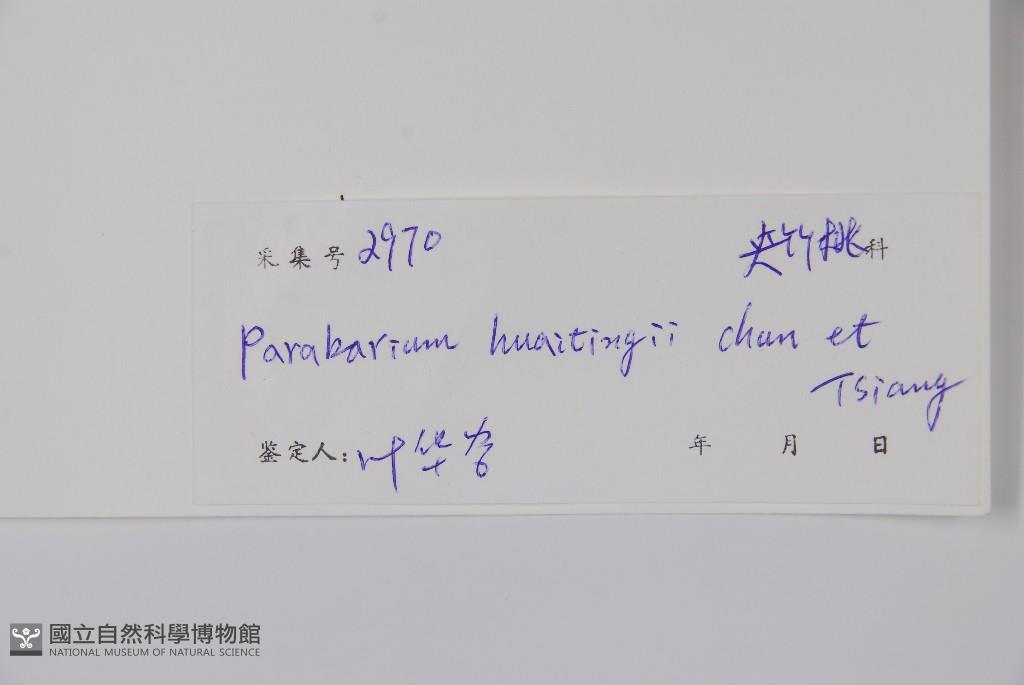 采集号 2970 夹竹桃科
Parabarium huaitingii chun et
Tsiang
鉴定人: 叶华谷 年 月 日
國立自然科學博物館
NATIONAL MUSEUM OF NATURAL SCIENCE